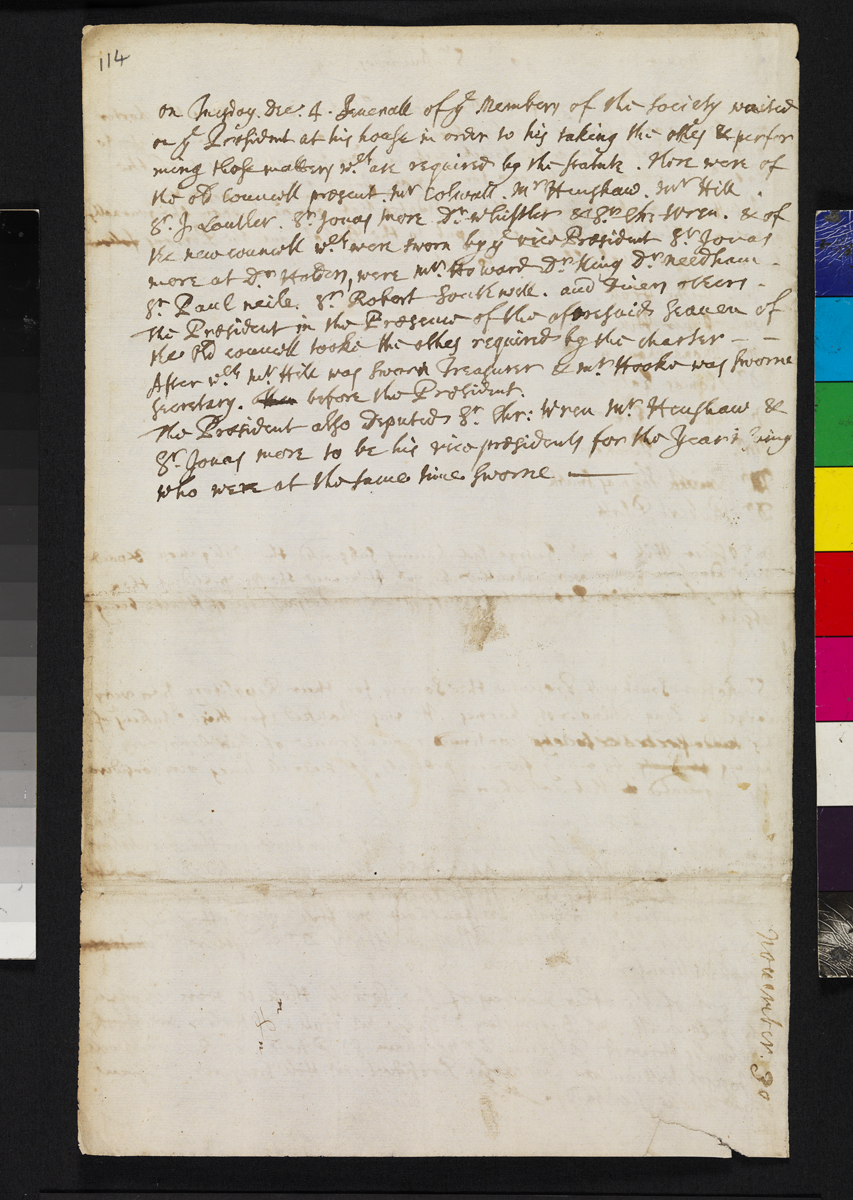 114
on Tuesday. Dec. 4. seuerall of ye Members of the Society waited
on ye President at his house in order to his taking the othes & perfor
ming those matters wch are required by the statute. There were of
the old Councell present. Mr Colwall. Mr Henshaw. Mr Hill.
Sr. J Lowther. Sr. Jonas more Dr. whistler & Sr. Chr: Wren. & of
the new councell wch were sworn by ye vice President Sr Jonas
more at Dr. Holders, were Mr. Howard Dr. King Dr. needham
Sr. Paul neile. Sr. Robert Southwell. and diuers others.
The President in the Presence of the aforesaid Seauen of
the old councell tooke the othes required by the charter — —
After wch Mr. Hill was sworn Treasurer & Mr. Hooke was sworne
secretary. before the President.
The President also deputed Sr. Chr: Wren Mr. Henshaw &
Sr. Jonas more to be his vice presidents for the Year
who were at the same time sworne —
nouember. 30